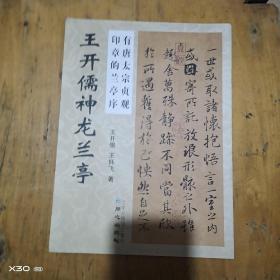 王开儒神龙兰亭
有唐太宗贞观
印章的兰亭序
王开儒 王科飞 著
一世或取諸懷抱悟言一室之内
或因寄所託放浪形骸之外雖
趣舍萬殊静躁不同當其欣
於所遇蹔得於己怏然自足不
X30